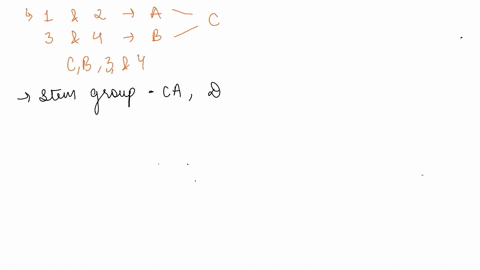 ↳ 1 & 2 → A
C
3 & 4 → B
C, B, 3, & 4
→ Stem group - CA, D